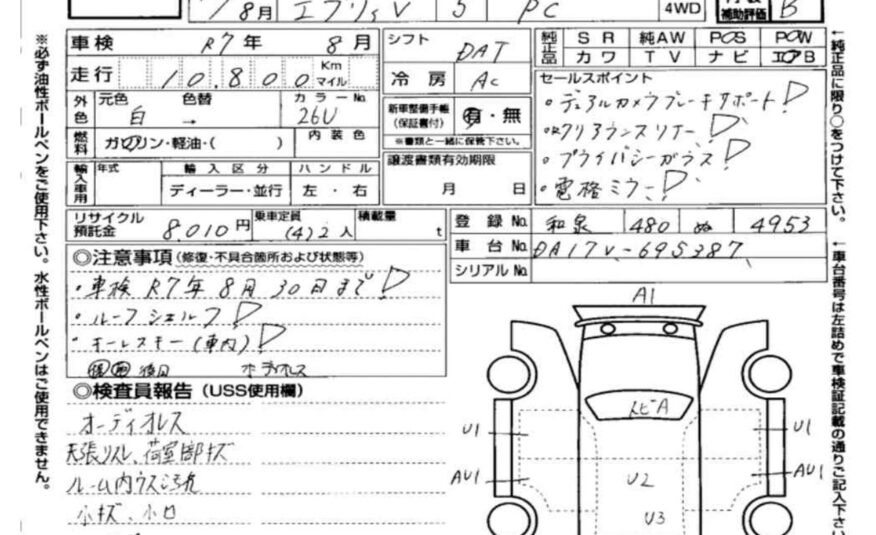 8月 エブリィV 5 PC 4WD 内装 補助評価 B
車検 R7年 8月
シフト DAT
純正品 SR 純AW PōS PōW
カワ TV ナビ エアB
走行 10,800 Km マイル
冷房 AC
セールスポイント
・デュアルカメラブレーキサポート!
・リアクリアランスソナー!
・プライバシーガラス!
・電格ミラー!
外色 元色 白 色替 → カラーNo. 26U
新車整備手帳 (保証書付) 有・無
※書類と一緒に保管下さい。
燃料 ガソリン・軽油・( ) 内装色
譲渡書類有効期限
月 日
輸入車用 年式 輸入区分 ハンドル
ディーラー・並行 左・右
リサイクル預託金 8,010円 乗車定員 (4)2人 積載量 t
登録No. 和泉 480 ぬ 4953
車台No. DA17V-695387
シリアルNo.
◎注意事項 (修復・不具合箇所および状態等)
・車検 R7年8月30日まで!
・ルーフシェルフ!
・キーレスキー(車内)!
◎検査員報告 (USS使用欄)
オーディオレス
天張リスレ、荷室部キズ
ルーム内ウスヨゴレ
小キズ、小凹
A1
トビA
U1 U1
AU1 AU1
U2
U3
※必ず油性ボールペンをご使用下さい。水性ボールペンはご使用できません。
←純正品に限り○をつけて下さい。
←車台番号は左詰めで車検証記載の通りご記入下さい